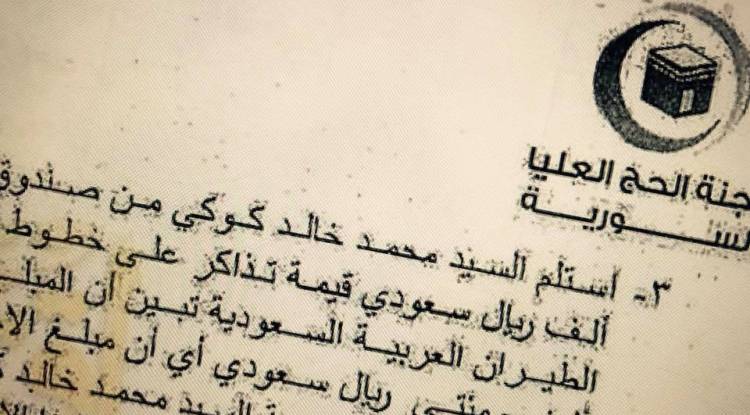 جنة الحج العليا
لسـورية
٣- استلم السيد محمد خالد كوكي من صندوق
ألف ريال سعودي قيمة تذاكر على خطوط
الطيران العربية السعودية تبين أن المبل
ومئتي ريال سعودي أي أن مبلغ الا
السيد محمد خالد